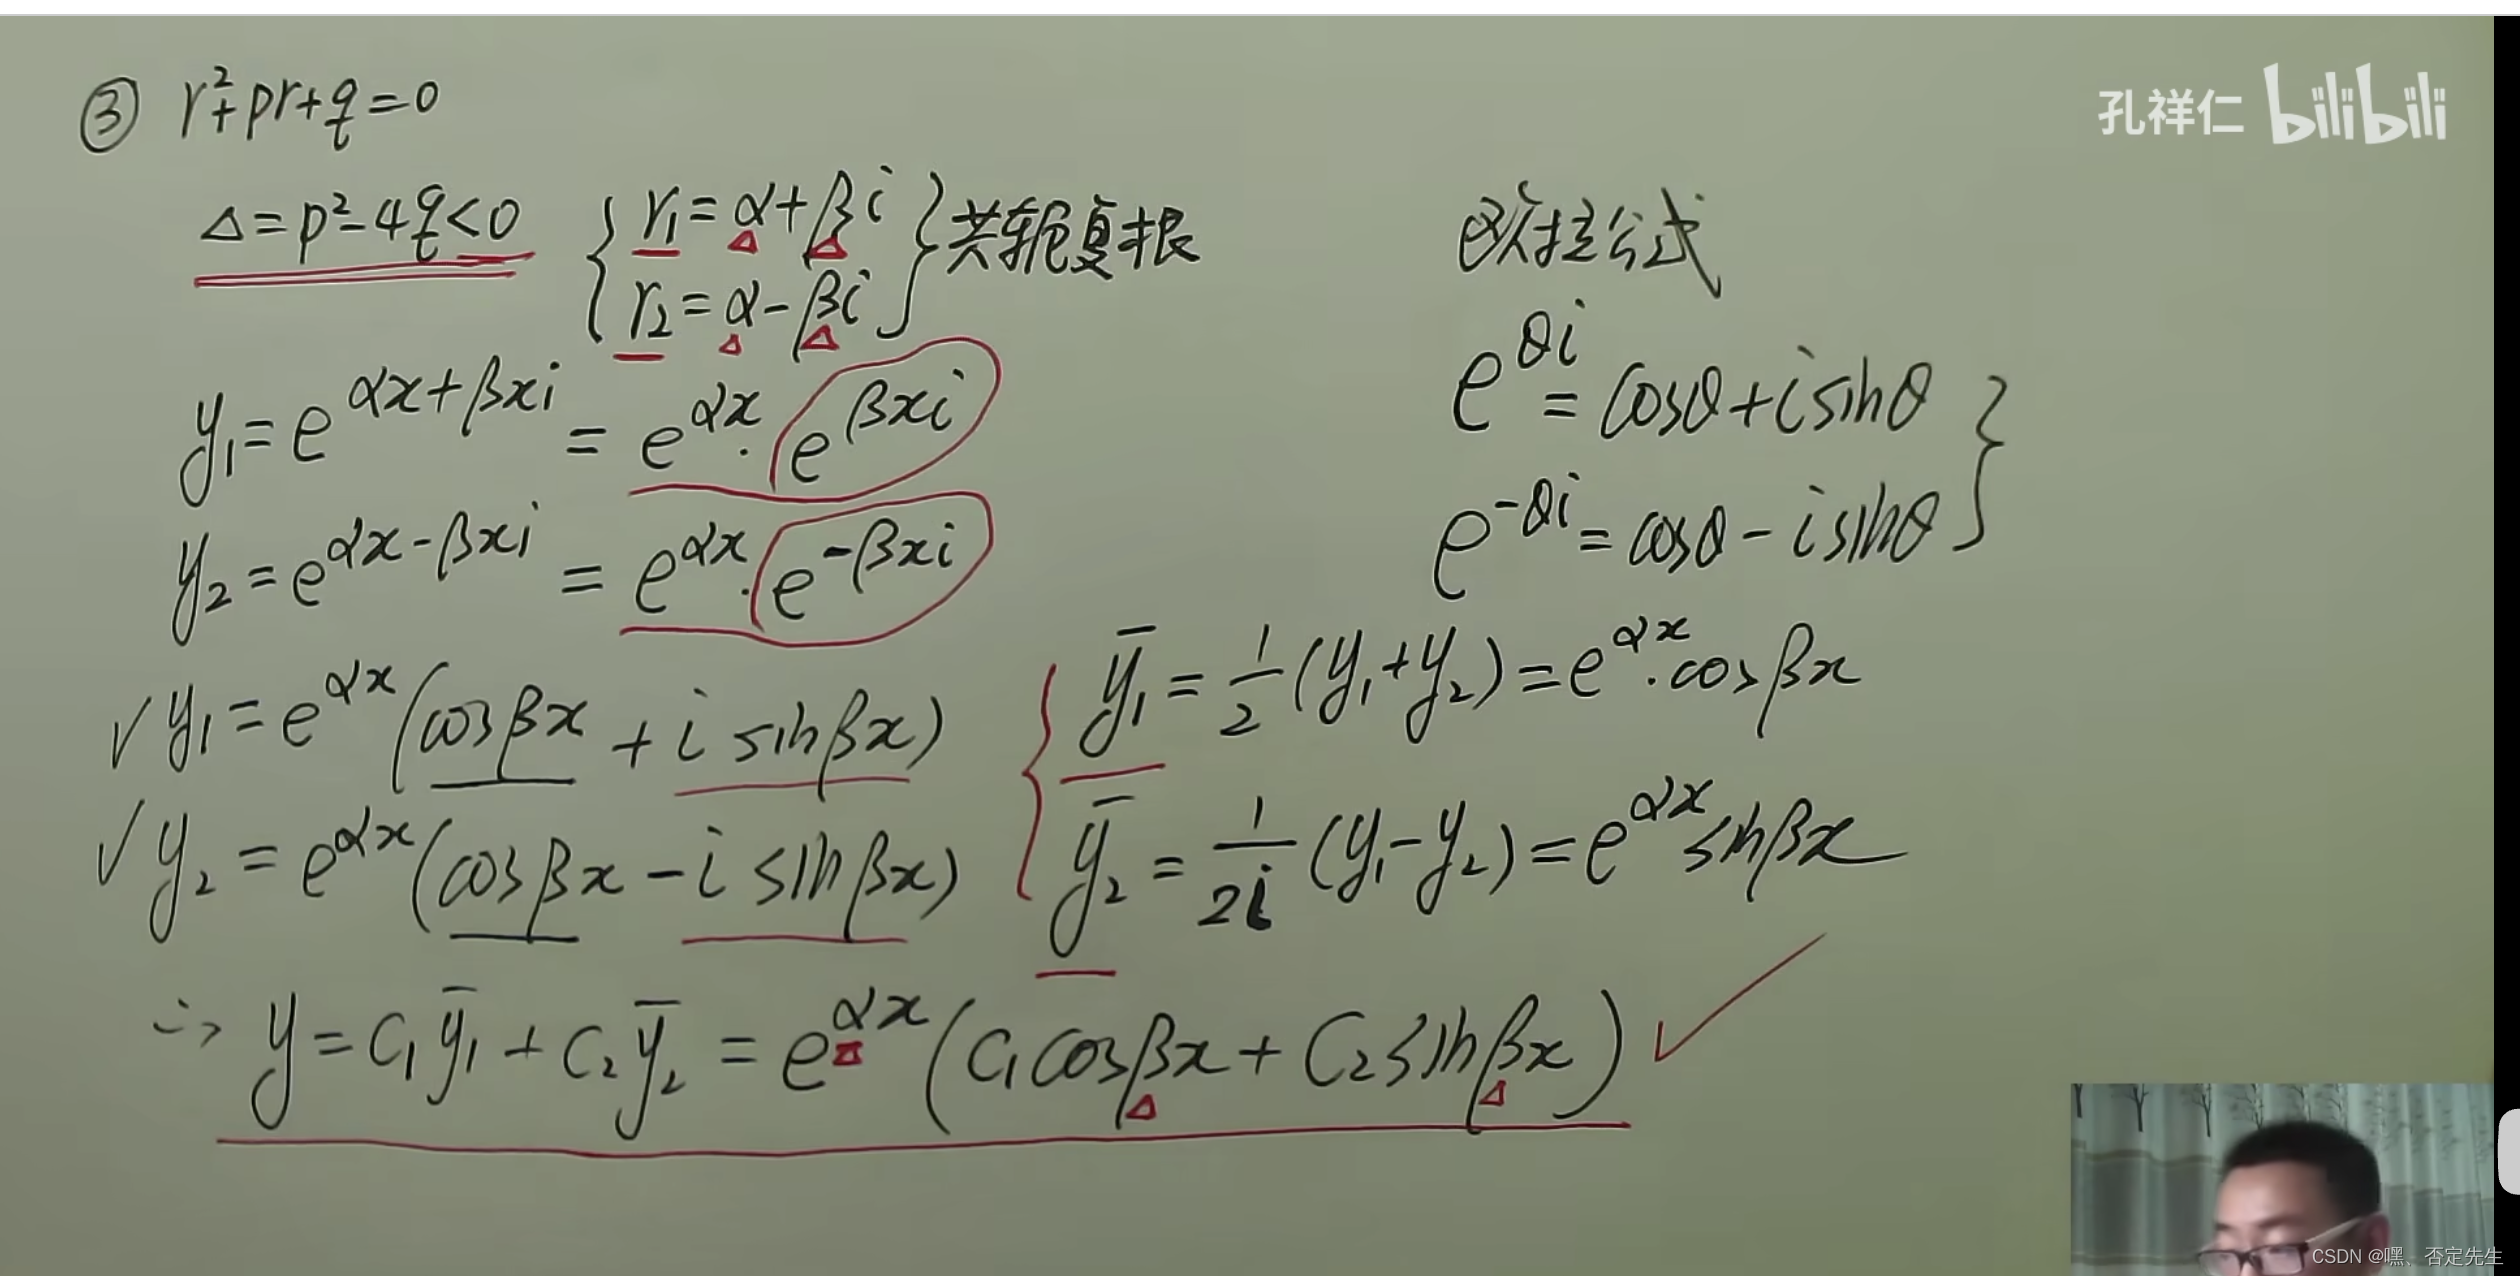 ③ r²+pr+q=0
孔祥仁 bilibili
Δ=p²-4q<0 { r₁=α+βi
r₂=α-βi } 共轭复根
欧拉公式
e^{θi}=cosθ+isinθ
e^{-θi}=cosθ-isinθ }
y₁=e^{αx+βxi}=e^{αx}·e^{βxi}
y₂=e^{αx-βxi}=e^{αx}·e^{-βxi}
√ y₁=e^{αx}(cosβx+i sinβx)
√ y₂=e^{αx}(cosβx-i sinβx)
{ ȳ₁=1/2(y₁+y₂)=e^{αx}·cosβx
ȳ₂=1/2i(y₁-y₂)=e^{αx}sinβx
∴ y=C₁ȳ₁+C₂ȳ₂=e^{αx}(C₁cosβx+C₂sinβx) √
CSDN @嘿、否定先生